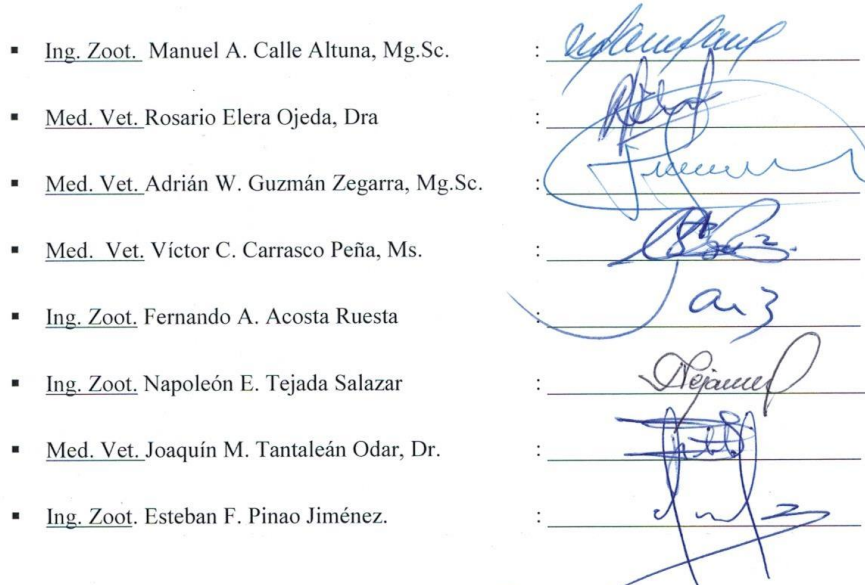 ▪ Ing. Zoot. Manuel A. Calle Altuna, Mg.Sc. :
▪ Med. Vet. Rosario Elera Ojeda, Dra :
▪ Med. Vet. Adrián W. Guzmán Zegarra, Mg.Sc. :
▪ Med. Vet. Víctor C. Carrasco Peña, Ms. :
▪ Ing. Zoot. Fernando A. Acosta Ruesta :
▪ Ing. Zoot. Napoleón E. Tejada Salazar :
▪ Med. Vet. Joaquín M. Tantaleán Odar, Dr. :
▪ Ing. Zoot. Esteban F. Pinao Jiménez. :